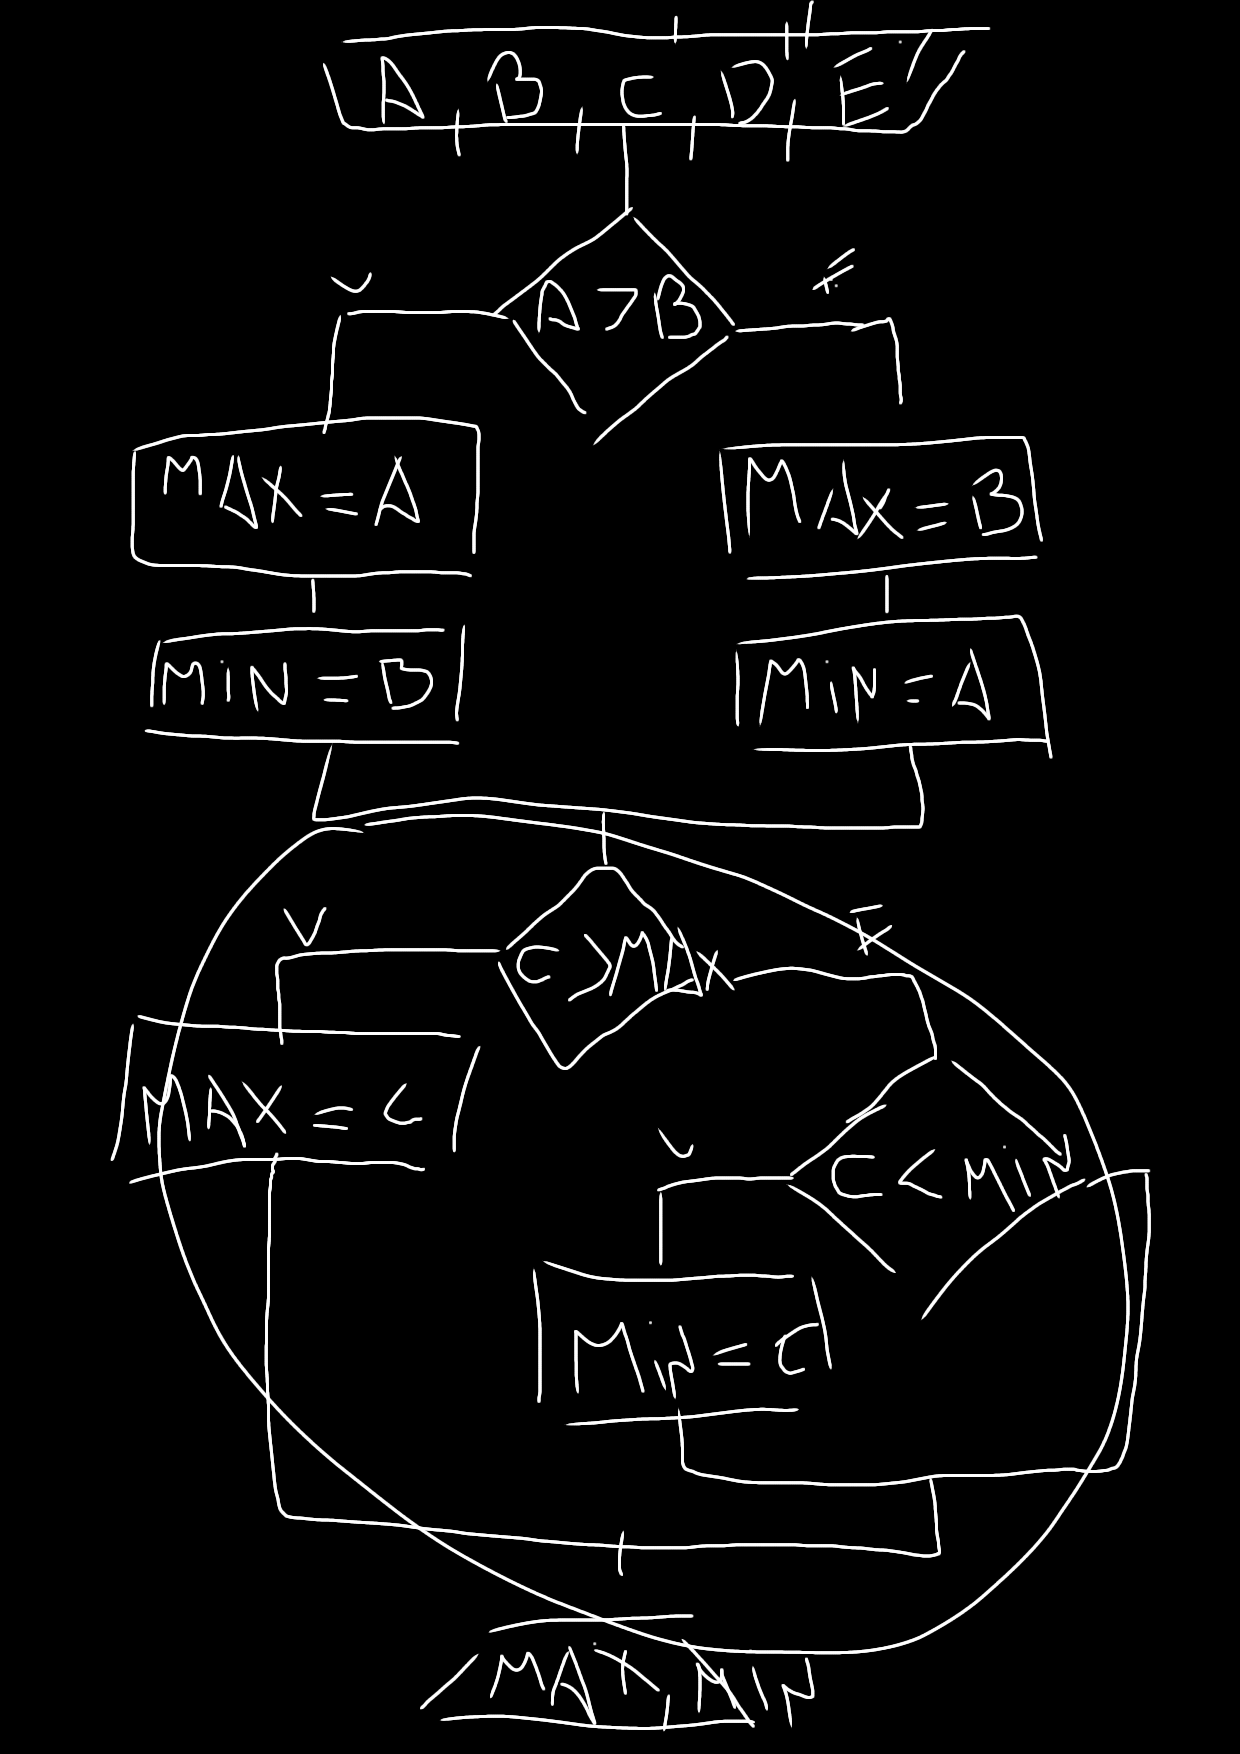 A, B, C, D, E
A > B
V
F
MAX = A
MAX = B
MIN = B
MIN = A
C > MAX
V
F
MAX = C
C < MIN
V
MIN = C
MAX, MIN